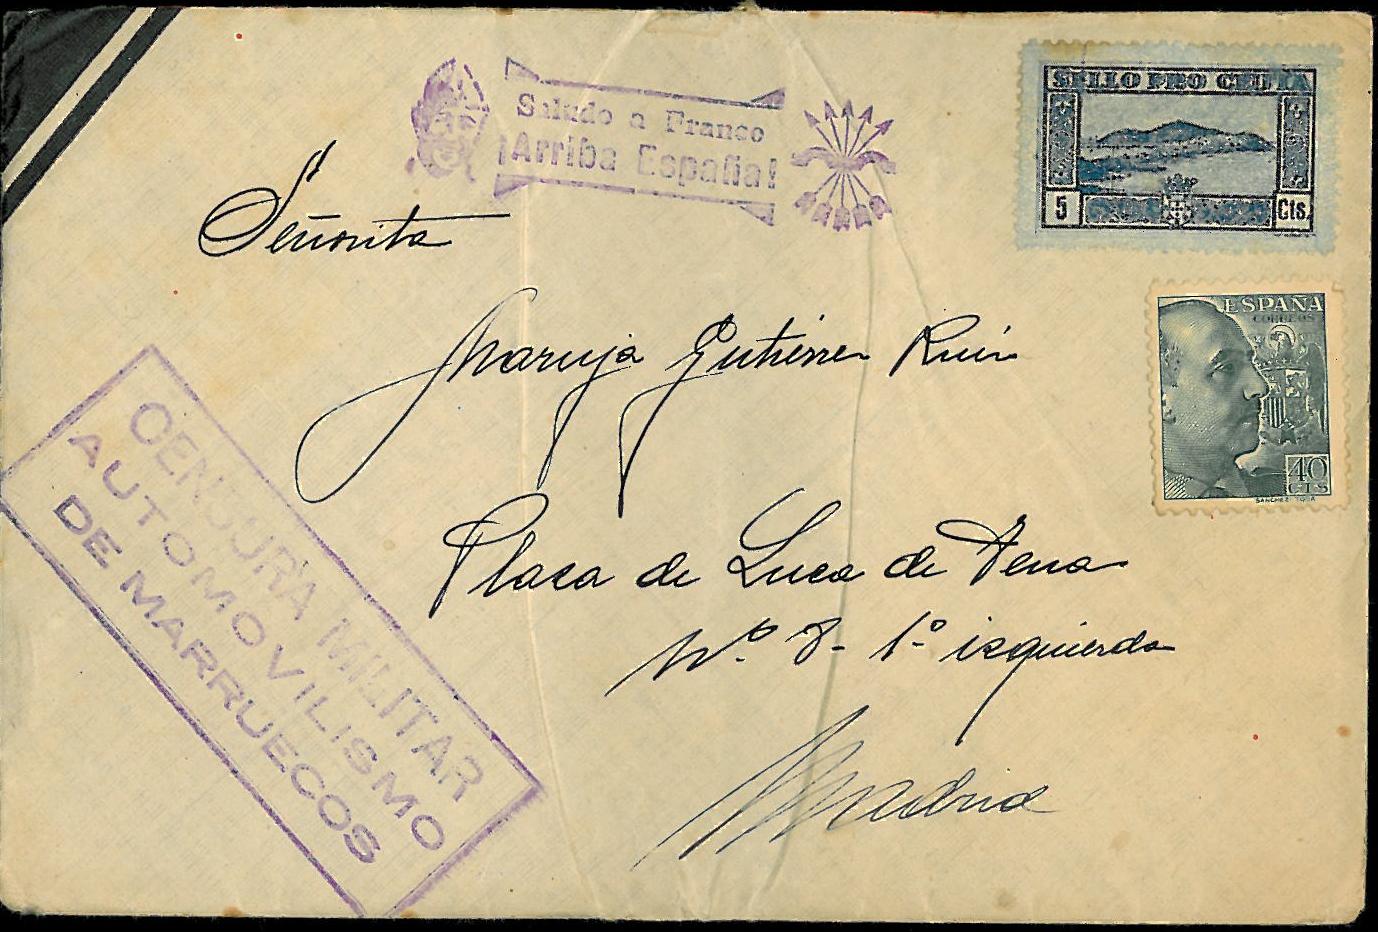 Saludo a Franco
¡Arriba España!
SELLO PRO CEUTA
5 Cts.
ESPAÑA
CORREOS
40
CTS
SANCHEZ TODA
Señorita
Maruja Gutiérrez Ruiz
Plaza de Luca de Tena
Nº. 8- 1º izquierda
Madrid
CENSURA MILITAR
AUTOMOVILISMO
DE MARRUECOS